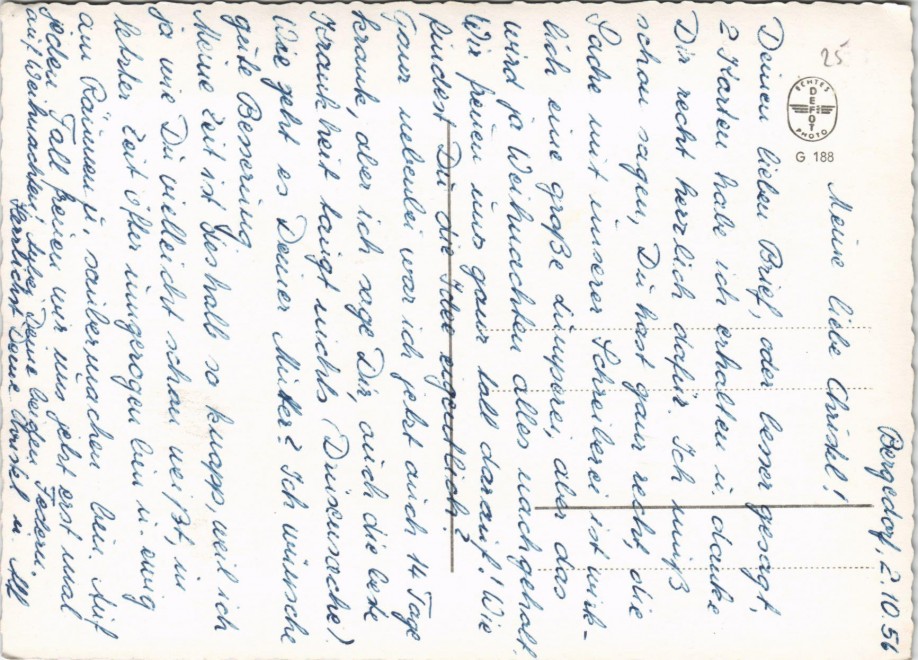 Bergedorf, 2.10.56
Meine liebe Christl!
Deinen lieben Brief, oder besser gesagt,
2 Karten habe ich erhalten u. danke
Dir recht herzlich dafür. Ich muß
schon sagen, Du hast ganz recht, die
Sache mit unserer Schreiberei ist wirk-
lich eine große, aber das
wird ja Weihnachten alles nachgeholt.
Wir freuen uns ganz toll darauf! Wie
findest Du die Idee eigentlich?
Ganz nebenbei war ich jetzt auch 14 Tage
krank, aber ich sage Dir, auch die beste
Krankheit taugt nichts (Drüsensache).
Wie geht es Deiner Mutter? Ich wünsche
gute Besserung.
Meine Zeit ist deshalb so knapp, weil ich
ja wie Du vielleicht schon weißt, in
letzter Zeit öfter umgezogen bin u. ewig
am Räumen u. saubermachen bin. Auf
jeden Fall freuen wir uns jetzt erst mal
auf Weihnachten!
Herzlichst Deine
25
ECHTES
DEFOT
PHOTO
G 188